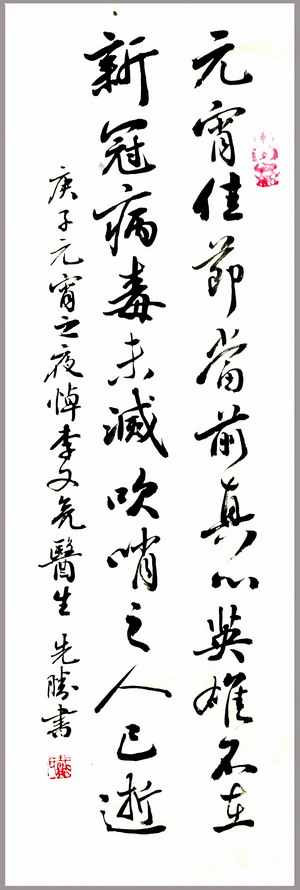 元宵佳節當前真心英雄不在
新冠病毒未滅吹哨之人已逝
庚子元宵之夜悼李文亮醫生 先勝書